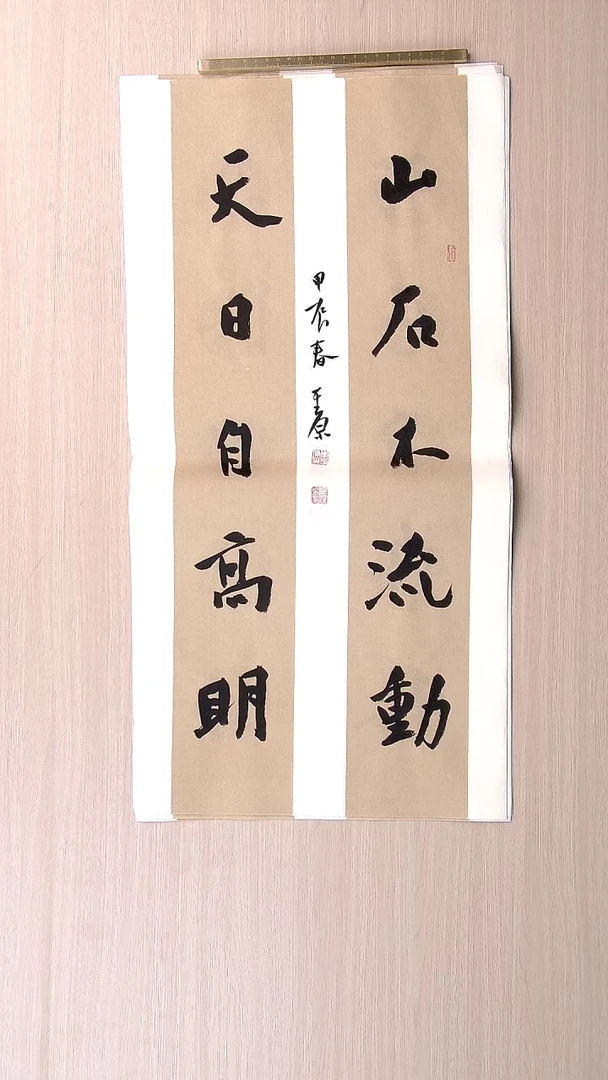 山石木流動
天日自高明
甲辰春 王原